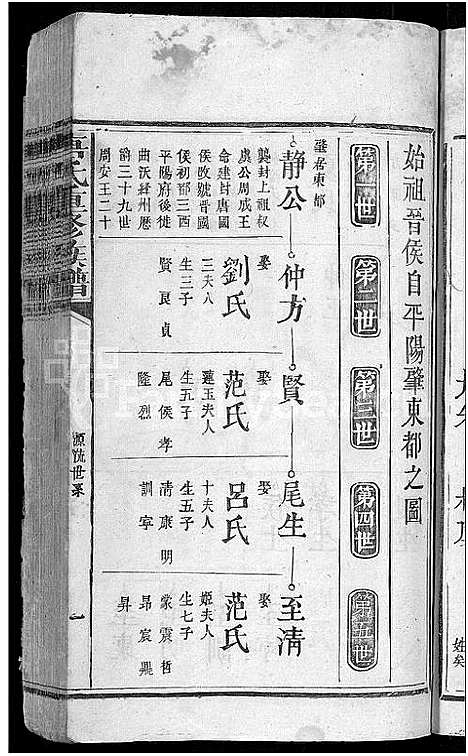 始祖晉侯自平陽肇東都之圖
第一世
第二世
第三世
第四世
第五世
肇者東都
静公
仲方
賢
尾生
至凊
襲封上祖权
虞公周成王
命建封唐國
侯改號晉國
侯初都三西
平陽府後徙
曲沃絳州歷
爵三十九世
周安王二十
娶
劉氏
三夫八
生三子
賢良貞
娶
范氏
蓮玉夫人
生五子
尾侯孝
隆烈
娶
呂氏
十夫人
生五子
清康明
訓寕
娶
范氏
姬夫人
生七子
蒙震哲
昂宸興
昇
氏重修族譜
源流世系
一
姓矣